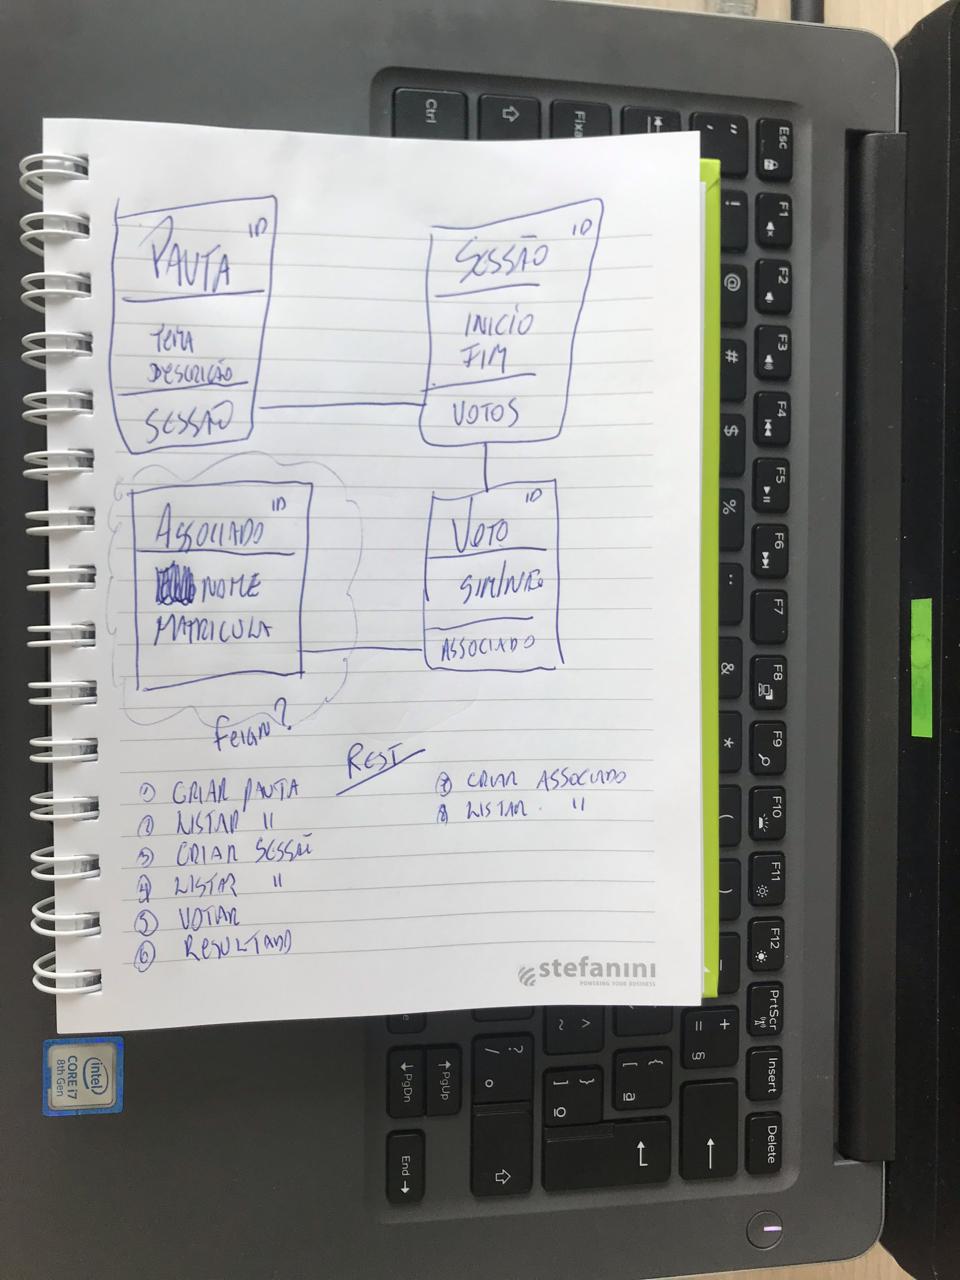 ID
PAUTA
TEMA
DESCRIÇÃO
SESSÃO
ID
SESSÃO
INICIO
FIM
VOTOS
ID
ASSOCIADO
NOME
MATRICULA
ID
VOTO
SIM/NÃO
ASSOCIADO
Feign?
REST
① CRIAR PAUTA
② LISTAR "
③ CRIAR SESSÃO
④ LISTAR "
⑤ VOTAR
⑥ RESULTADO
⑦ CRIAR ASSOCIADO
⑧ LISTAR "
stefanini
POWERING YOUR BUSINESS
intel
CORE i7
8th Gen
Ctrl
Fixa
Esc
F1
F2
F3
F4
F5
F6
F7
F8
F9
F10
F11
F12
PrtScr
Insert
Delete
" '
!
@
#
$
%
¨
&
*
(
)
_
+ = §
{ [ ª
} ] º
^ ~
? / °
PgUp
PgDn
End